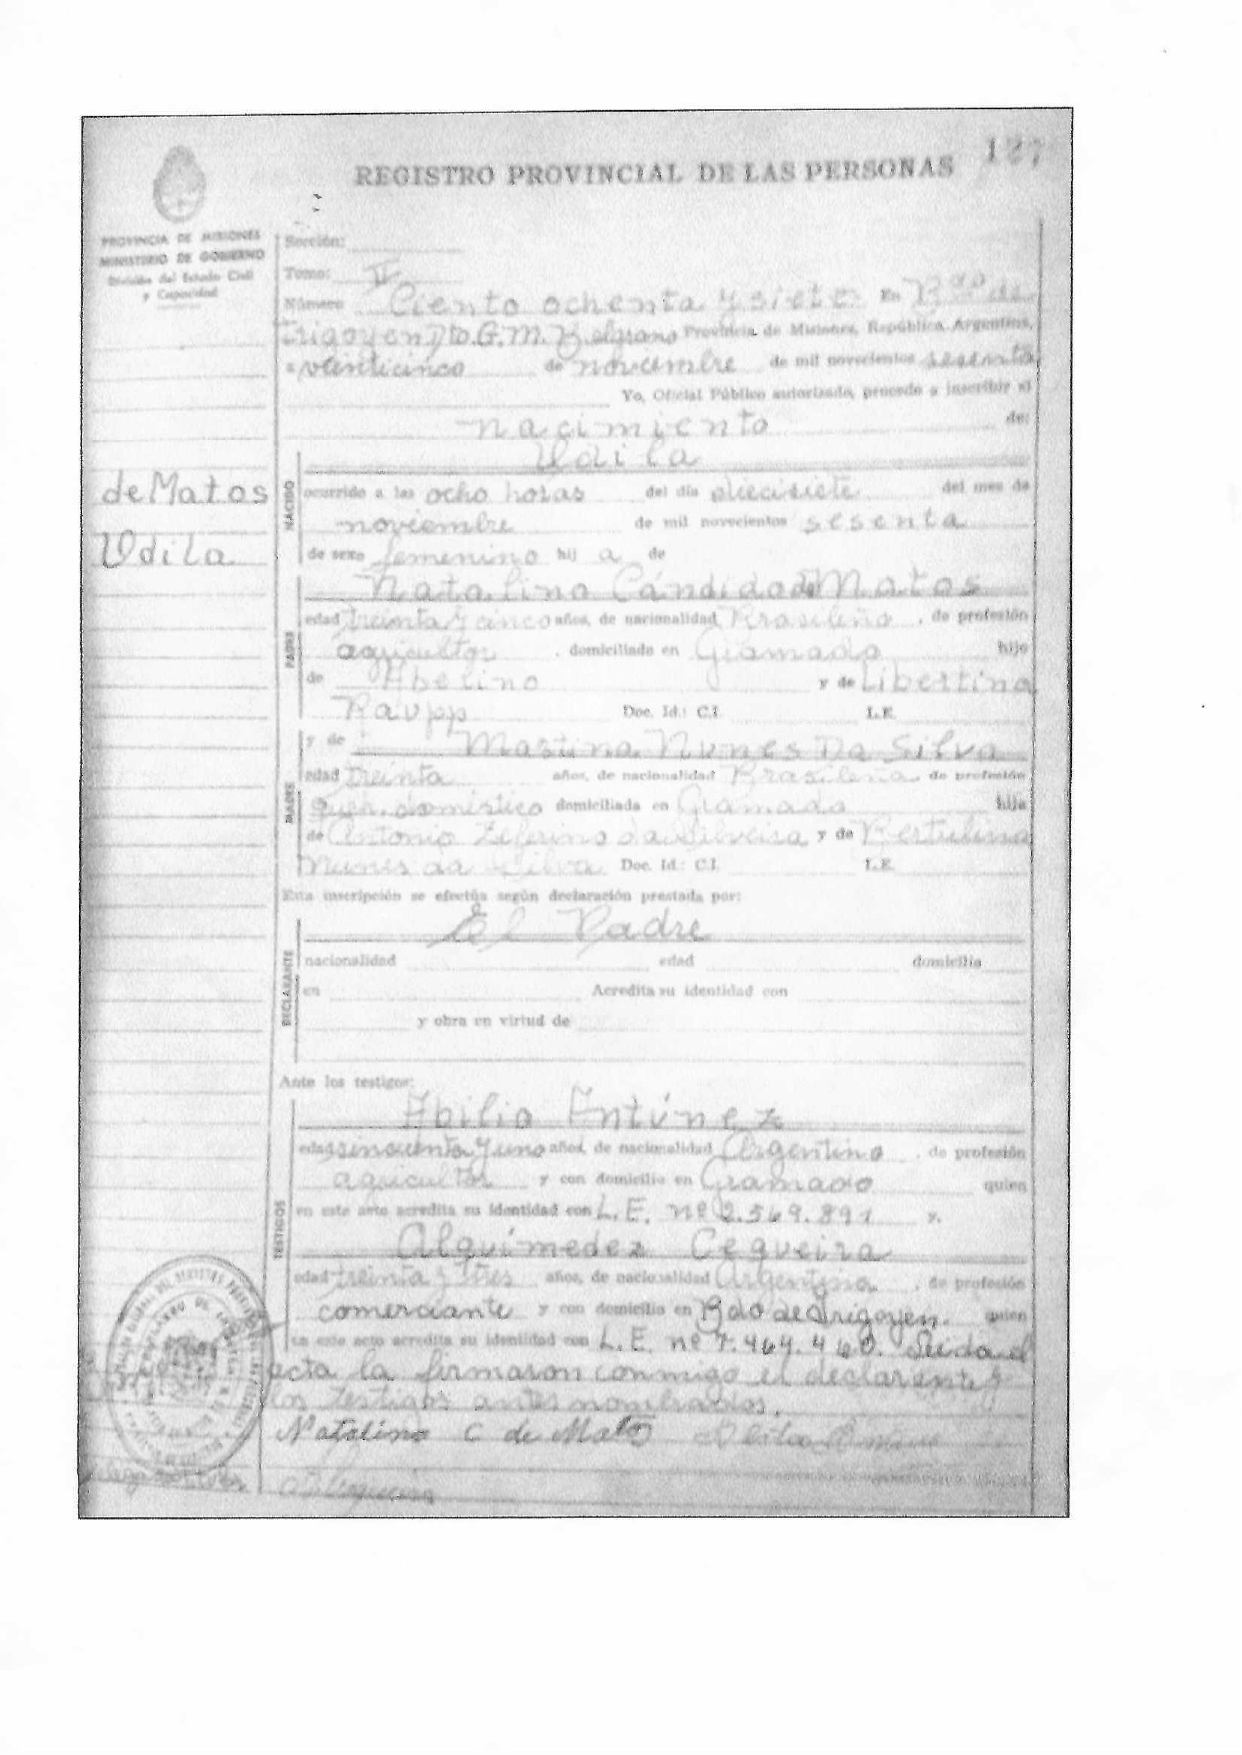 187
REGISTRO PROVINCIAL DE LAS PERSONAS
PROVINCIA DE MISIONES
MINISTERIO DE GOBIERNO
División del Estado Civil
y Capacidad
Sección:
Tomo: II
Número Ciento ochenta y siete En Bdo de
Irigoyen Dto. G. M. Belgrano Provincia de Misiones, República Argentina,
a veinticinco de noviembre de mil novecientos sesenta
Yo, Oficial Público autorizado, procedo a inscribir el
nacimiento de:
Udila
de Matos
Udila
NACIDO
ocurrido a las ocho horas del día diecisiete del mes de
noviembre de mil novecientos sesenta
de sexo femenino hij a de
PADRE
Natalino Cándido de Matos
edad treinta y cinco años, de nacionalidad Brasileño, de profesión
agricultor, domiciliado en Gramado hijo
de Abelino y de Libertina
Raupp Doc. Id.: C.I. L.E.
MADRE
y de Martina Nunes Da Silva
edad treinta años, de nacionalidad Brasileña de profesión
quer. doméstico domiciliada en Gramado hija
de Antonio Zeferino da Silveira y de Bertulina
Nunes da Silva Doc. Id.: C.I. L.E.
Esta inscripción se efectúa según declaración prestada por:
DECLARANTE
El Padre
nacionalidad edad domicilio
en Acredita su identidad con
y obra en virtud de
Ante los testigos:
TESTIGOS
Abilio Antúnez
edad sincuenta y uno años, de nacionalidad Argentino, de profesión
agricultor y con domicilio en Gramado quien
en este acto acredita su identidad con L.E. nº 2.569.891 y,
Alquímedez Cequeira
edad treinta y tres años, de nacionalidad Argentina, de profesión
comerciante y con domicilio en Bdo de Irigoyen. quien
en este acto acredita su identidad con L.E. nº 7.464.460. Leida el
acta la firmaron conmigo el declarante y
los testigos antes nombrados.
Natalino C de Mato